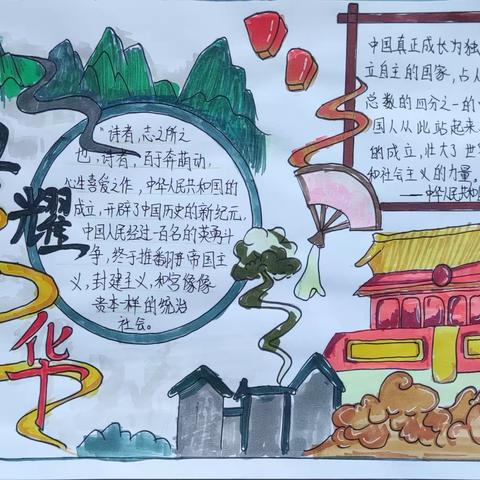 耀
华
"诗者,志之所之
也,诗者,百卉萌动,
心生喜爱之作,中华人民共和国的
成立,开辟了中国历史的新纪元,
中国人民经过一百多年的英勇斗
争,终于推翻了帝国主
义,封建主义,和官僚
资本样的统治
社会。
中国真正成长为独
立自主的国家,占人
总数的四分之一的中
国人从此站起来
的成立,壮大了世
和社会主义的力量。
——中华人民共和